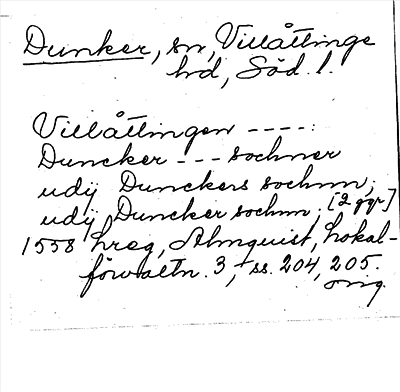 Dunker, sn, Villåttinge
hd, Söd. l.
Villåttingen ----:
Duncker --- sochner
udij Dunckers sochnn,
udij Duncker sochnn, [2 ggr]
1558 hreg, Almquist, Lokal-
förvaltn. 3, ss. 204, 205.
orig.